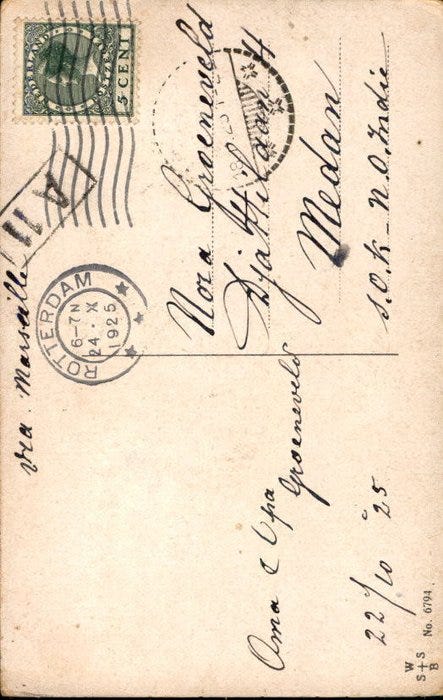 Oma & Opa
Groeneveld
22/10 25
W
S+S
B
No. 6794.
via Marseille
ROTTERDAM
6-7N
24.X
1925
A 11
NEDERLAND
5 CENT
Nora Groeneveld
Djattilaan 4
Medan
S.O.K - N.O. Indie